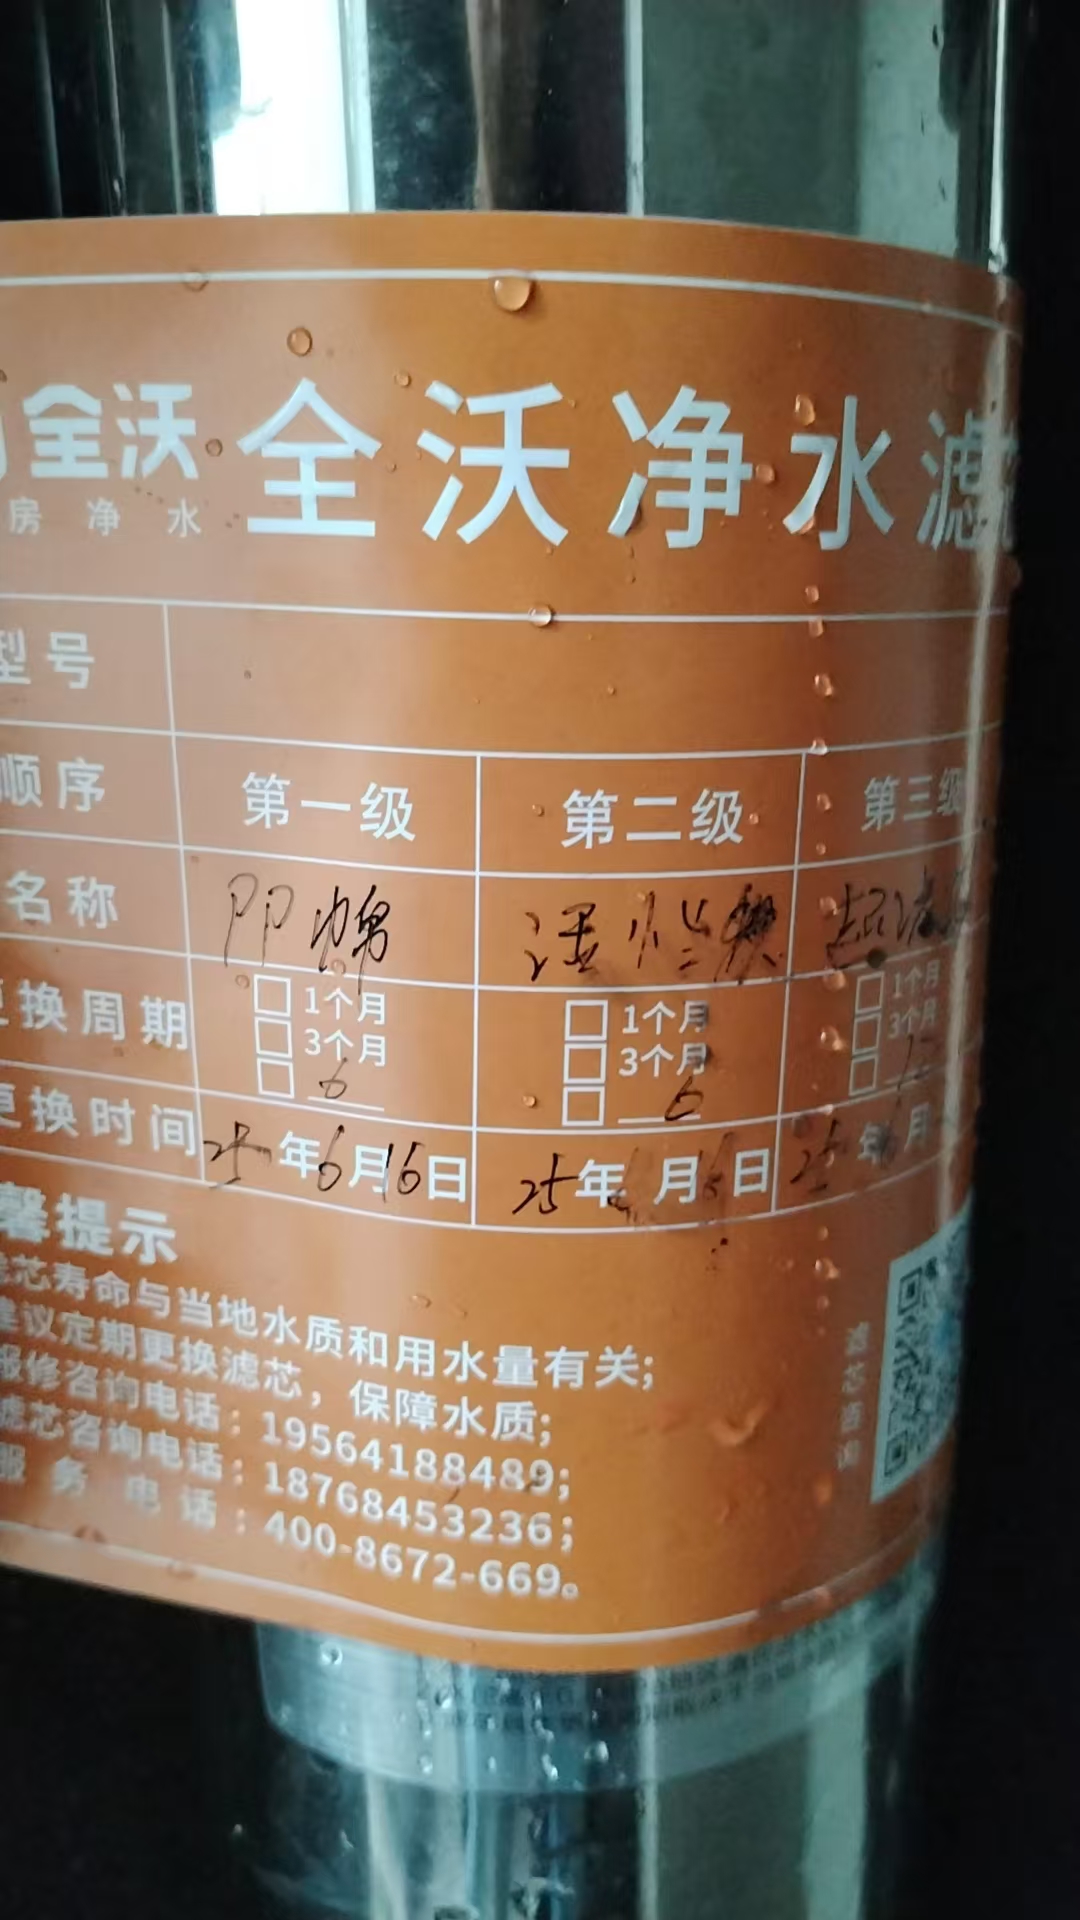 全沃 全沃净水滤
房净水
型号
顺序 第一级 第二级 第三级
名称 PP棉 活性炭 超滤
更换周期 1个月 1个月 1个月
3个月 3个月 3个月
6 6 12
更换时间 25年6月16日 25年6月16日 25年 月
馨提示
滤芯寿命与当地水质和用水量有关;
建议定期更换滤芯，保障水质;
报修咨询电话：19564188489;
滤芯咨询电话：18768453236;
服务电话：400-8672-669。
滤芯咨询